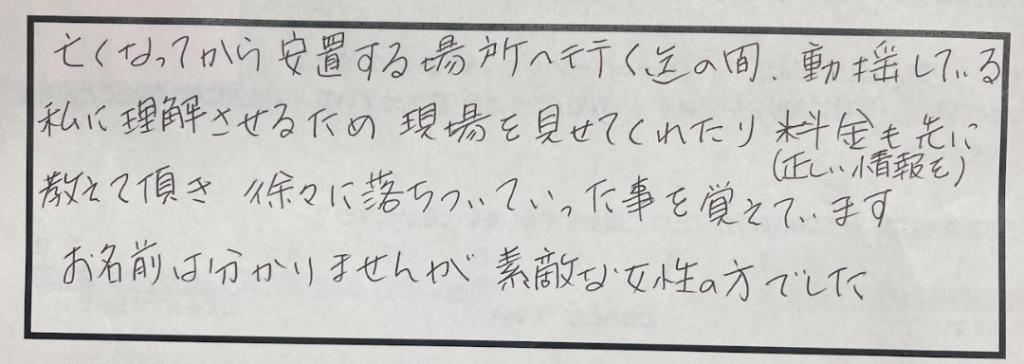 亡くなってから安置する場所へ行く迄の間、動揺している
私に理解させるため 現場を見せてくれたり 料金も先に
(正しい情報を)
教えて頂き 徐々に落ちついていった事を覚えています
お名前は分かりませんが 素敵な女性の方でした